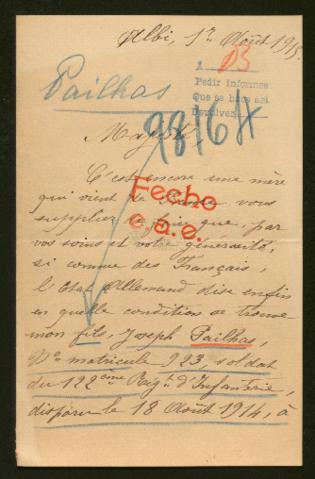 Albi, 1er Août 1915.
1 03
Pailhas
Pedir informes
Que se hace así
Devolver
9816 A
Majesté,
C'est encore une mère
qui vient de vous
Fecho
supplier de faire que, par
e.a.e.
vos soins et votre générosité,
si comme des Français,
l'Etat Allemand dise enfin
en quelle condition se trouve
mon fils, Joseph Pailhas,
No matricule 923, soldat
du 122ème Régt d'Infanterie,
disparu le 18 Août 1914, à